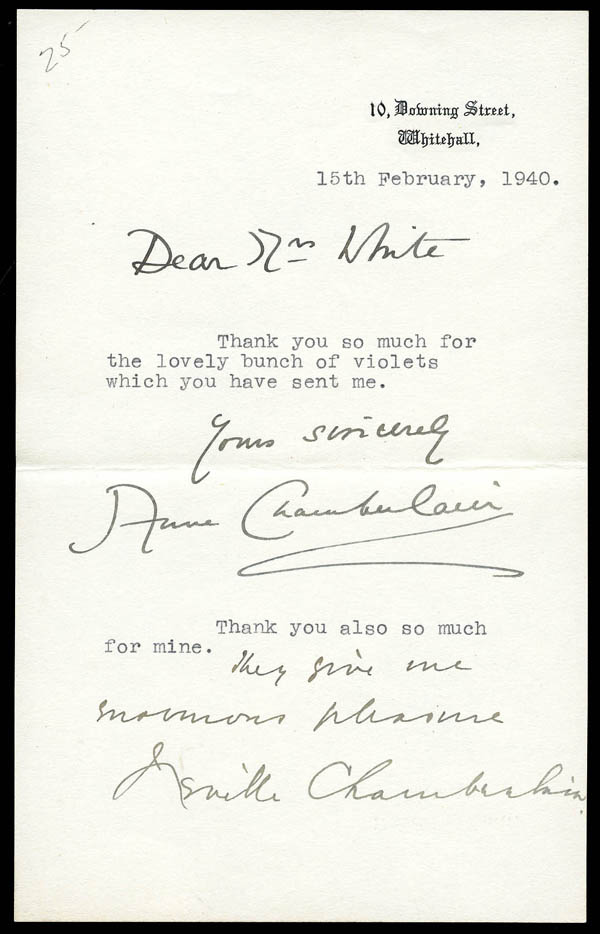 25
10, Downing Street,
Whitehall,
15th February, 1940.
Dear Mrs White
Thank you so much for
the lovely bunch of violets
which you have sent me.
Yours sincerely
Anne Chamberlain
Thank you also so much
for mine. They give me
enormous pleasure
Neville Chamberlain.